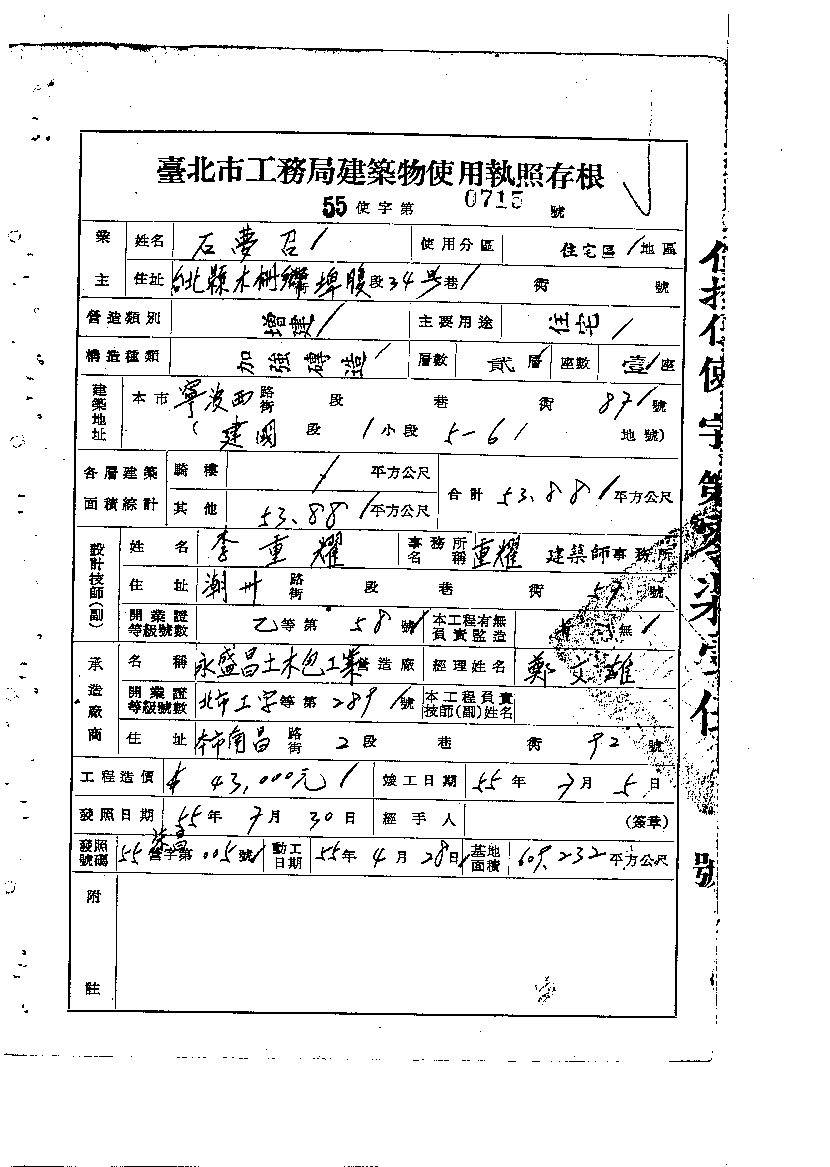 臺北市工務局建築物使用執照存根
55 使字第 0715 號
業主 姓名 石夢召 使用分區 住宅區 地區
住址 台北縣木柵鄉埤腹段34號 巷 街 號
營造類別 增建 主要用途 住宅
構造種類 加強磚造 層數 貳層 座數 壹座
建築地址 本市 寧波西 路街 段 巷 街 87 號
( 建國 段 1 小段 5-6 地號)
各層建築面積綜計 騎樓 平方公尺 合計 53.88 平方公尺
其他 53.88 平方公尺
設計技師(副) 姓名 李重耀 事務所名稱 重耀 建築師事務所
住址 潮州 路街 段 巷 街 59 號
開業證等級號數 乙等第 58 號 本工程有無負責監造 無
承造廠商 名稱 永盛昌土木包工業 營造廠 經理姓名 鄭文雄
開業證等級號數 北市工字等第 289 號 本工程負責技師(副)姓名
住址 本市南昌 路街 2 段 巷 街 92 號
工程造價 43,000元 竣工日期 55 年 7 月 5 日
發照日期 55 年 7 月 30 日 經手人 (簽章)
發照號碼 55 營字第 005 號 動工日期 55 年 4 月 28 日 基地面積 609.232 平方公尺
附註
使字第
號